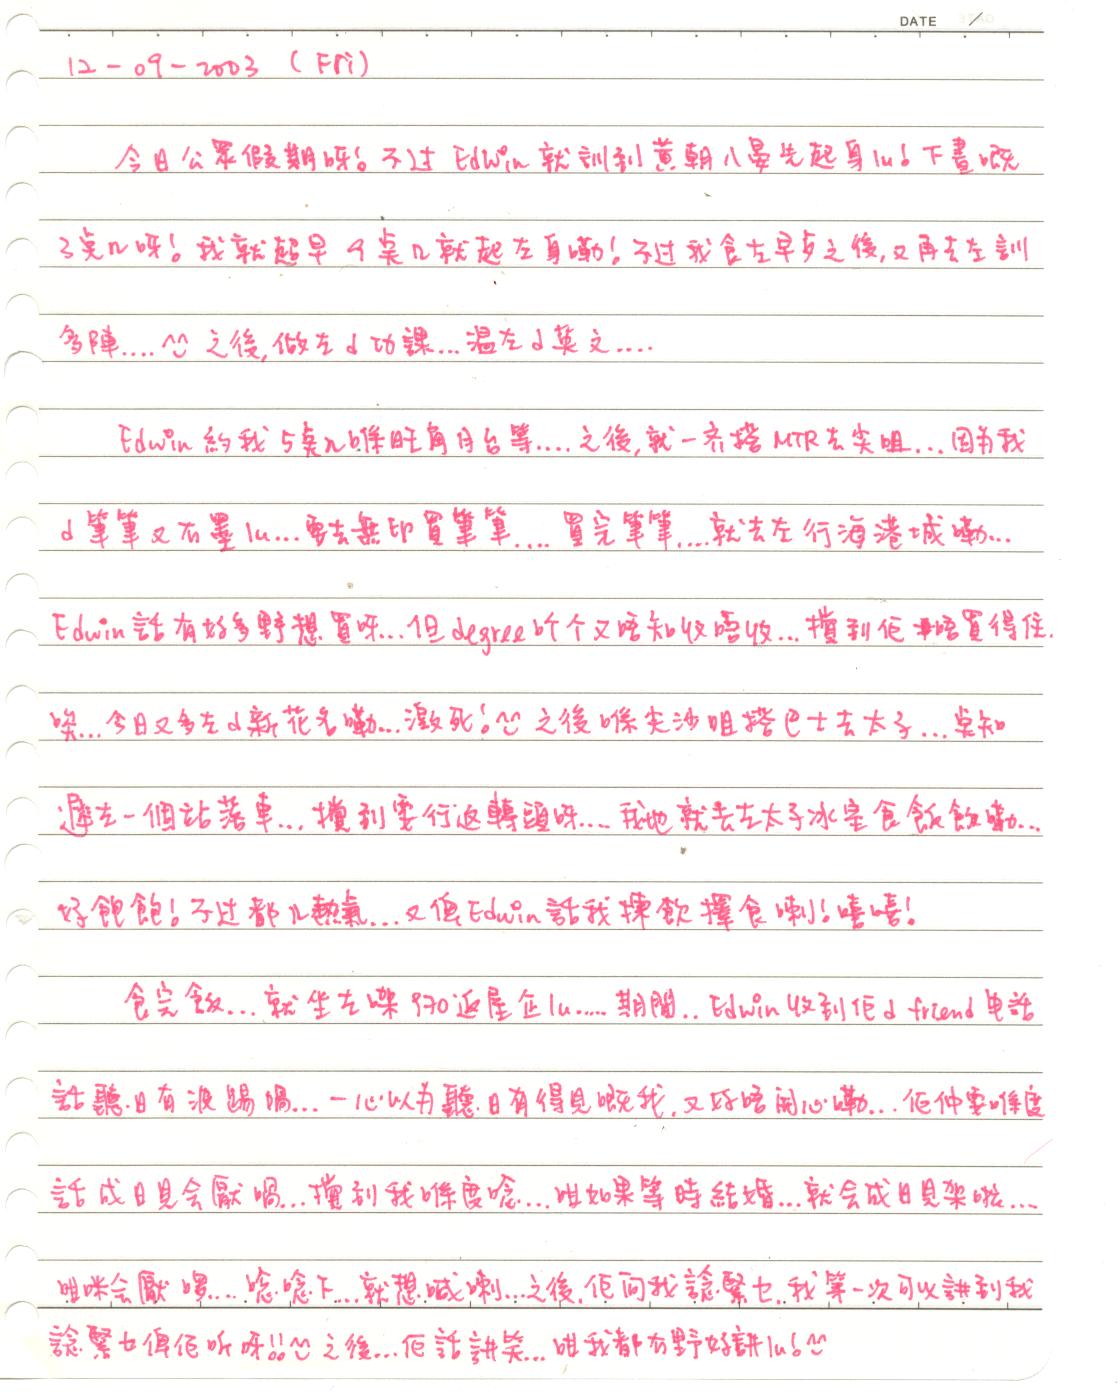 DATE /
12-09-2003 (Fri)
今日公眾假期呀! 不过 Edwin 就訓到黃朝八晏先起身lu! 下晝嘅
3点几呀! 我就超早 9点几就起左身嘞! 不过我食左早歺之後, 又再去左訓
多陣.... ^^ 之後, 做左d功課... 温左d英文....
Edwin 約我 5点几喺旺角月台等.... 之後, 就一齐搭 MTR 去尖咀... 因為我
d筆筆又冇墨lu... 要去無印買筆筆.... 買完筆筆.... 就去左行海港城嘞...
Edwin 話有好多野想買呀... 但 degree 吖个又唔知收唔收... 攪到佢唔買得住.
唉... 今日又多左d新花名嘞... 激死! ^^ 之後喺尖沙咀搭巴士去太子... 点知
遲左一個站落車... 攪到要行返轉頭呀.... 我地就去左太子冰室食飯飯嘞...
好飽飽! 不过都几熱氣... 又俾Edwin話我揀飲擇食喇! 嘻嘻!
食完飯... 就坐左架 970 返屋企lu..... 期間.. Edwin 收到佢d friend 电話
話聽日有波踢喎... 一心以為聽日有得見嘅我, 又好唔開心嘞... 佢仲要喺度
話成日見会厭喎... 攪到我喺度唸... 咁如果等時結婚... 就会成日見架啦...
咁咪会厭囉.... 唸唸下.... 就想喊喇... 之後, 佢问我諗緊乜. 我第一次可以講到我
諗緊乜俾佢听呀!! ^^ 之後... 佢話講笑... 咁我都冇野好講lu! ^^